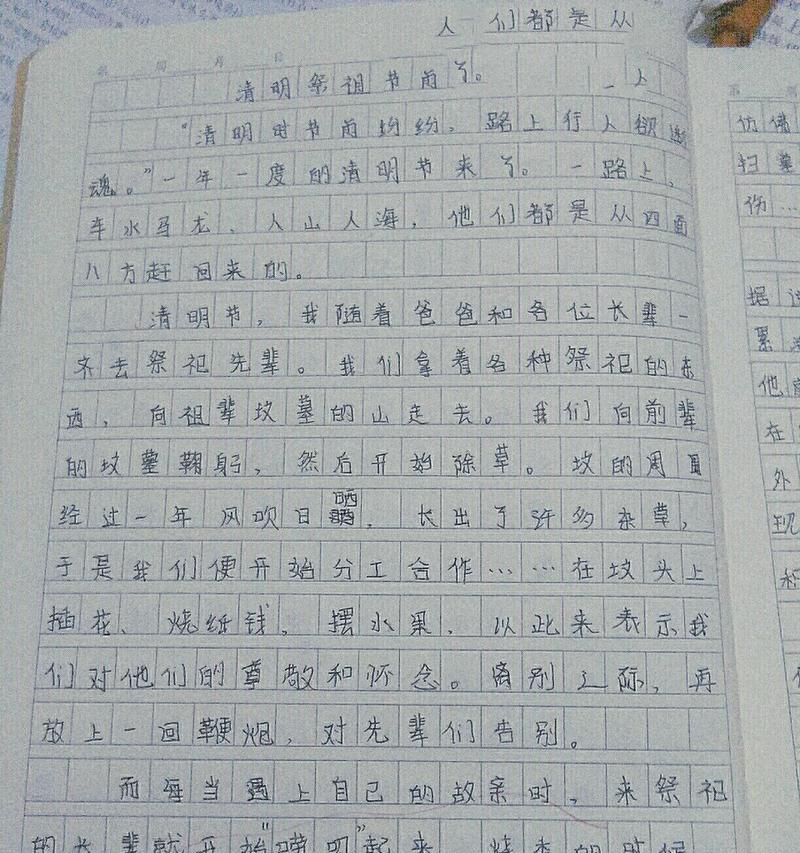 人 们都是从
清明祭祖节雨了。
一上
"清明时节雨纷纷，路上行人欲断
魂。"一年一度的清明节来了。一路上，
车水马龙，人山人海，他们都是从四面
八方赶回来的。
清明节，我随着爸爸和各位长辈一
齐去祭祀先辈。我们拿着各种祭祀的东
西，向祖辈坟墓的山走去。我们向前辈
的坟墓鞠躬，然后开始除草。坟的周围
经过一年风吹日晒，长出了许多杂草，
于是我们便开始分工合作……在坟头上
插花、烧纸钱，摆水果，以此来表示我
们对他们的尊敬和怀念。离别之际，再
放上一回鞭炮，对先辈们告别。
而每当遇上自己的故亲时，来祭祀
的长辈就开始"唠叨"起来，烧香的时候
仿佛
扫墓
伤…
据说
累
他
在
外
现